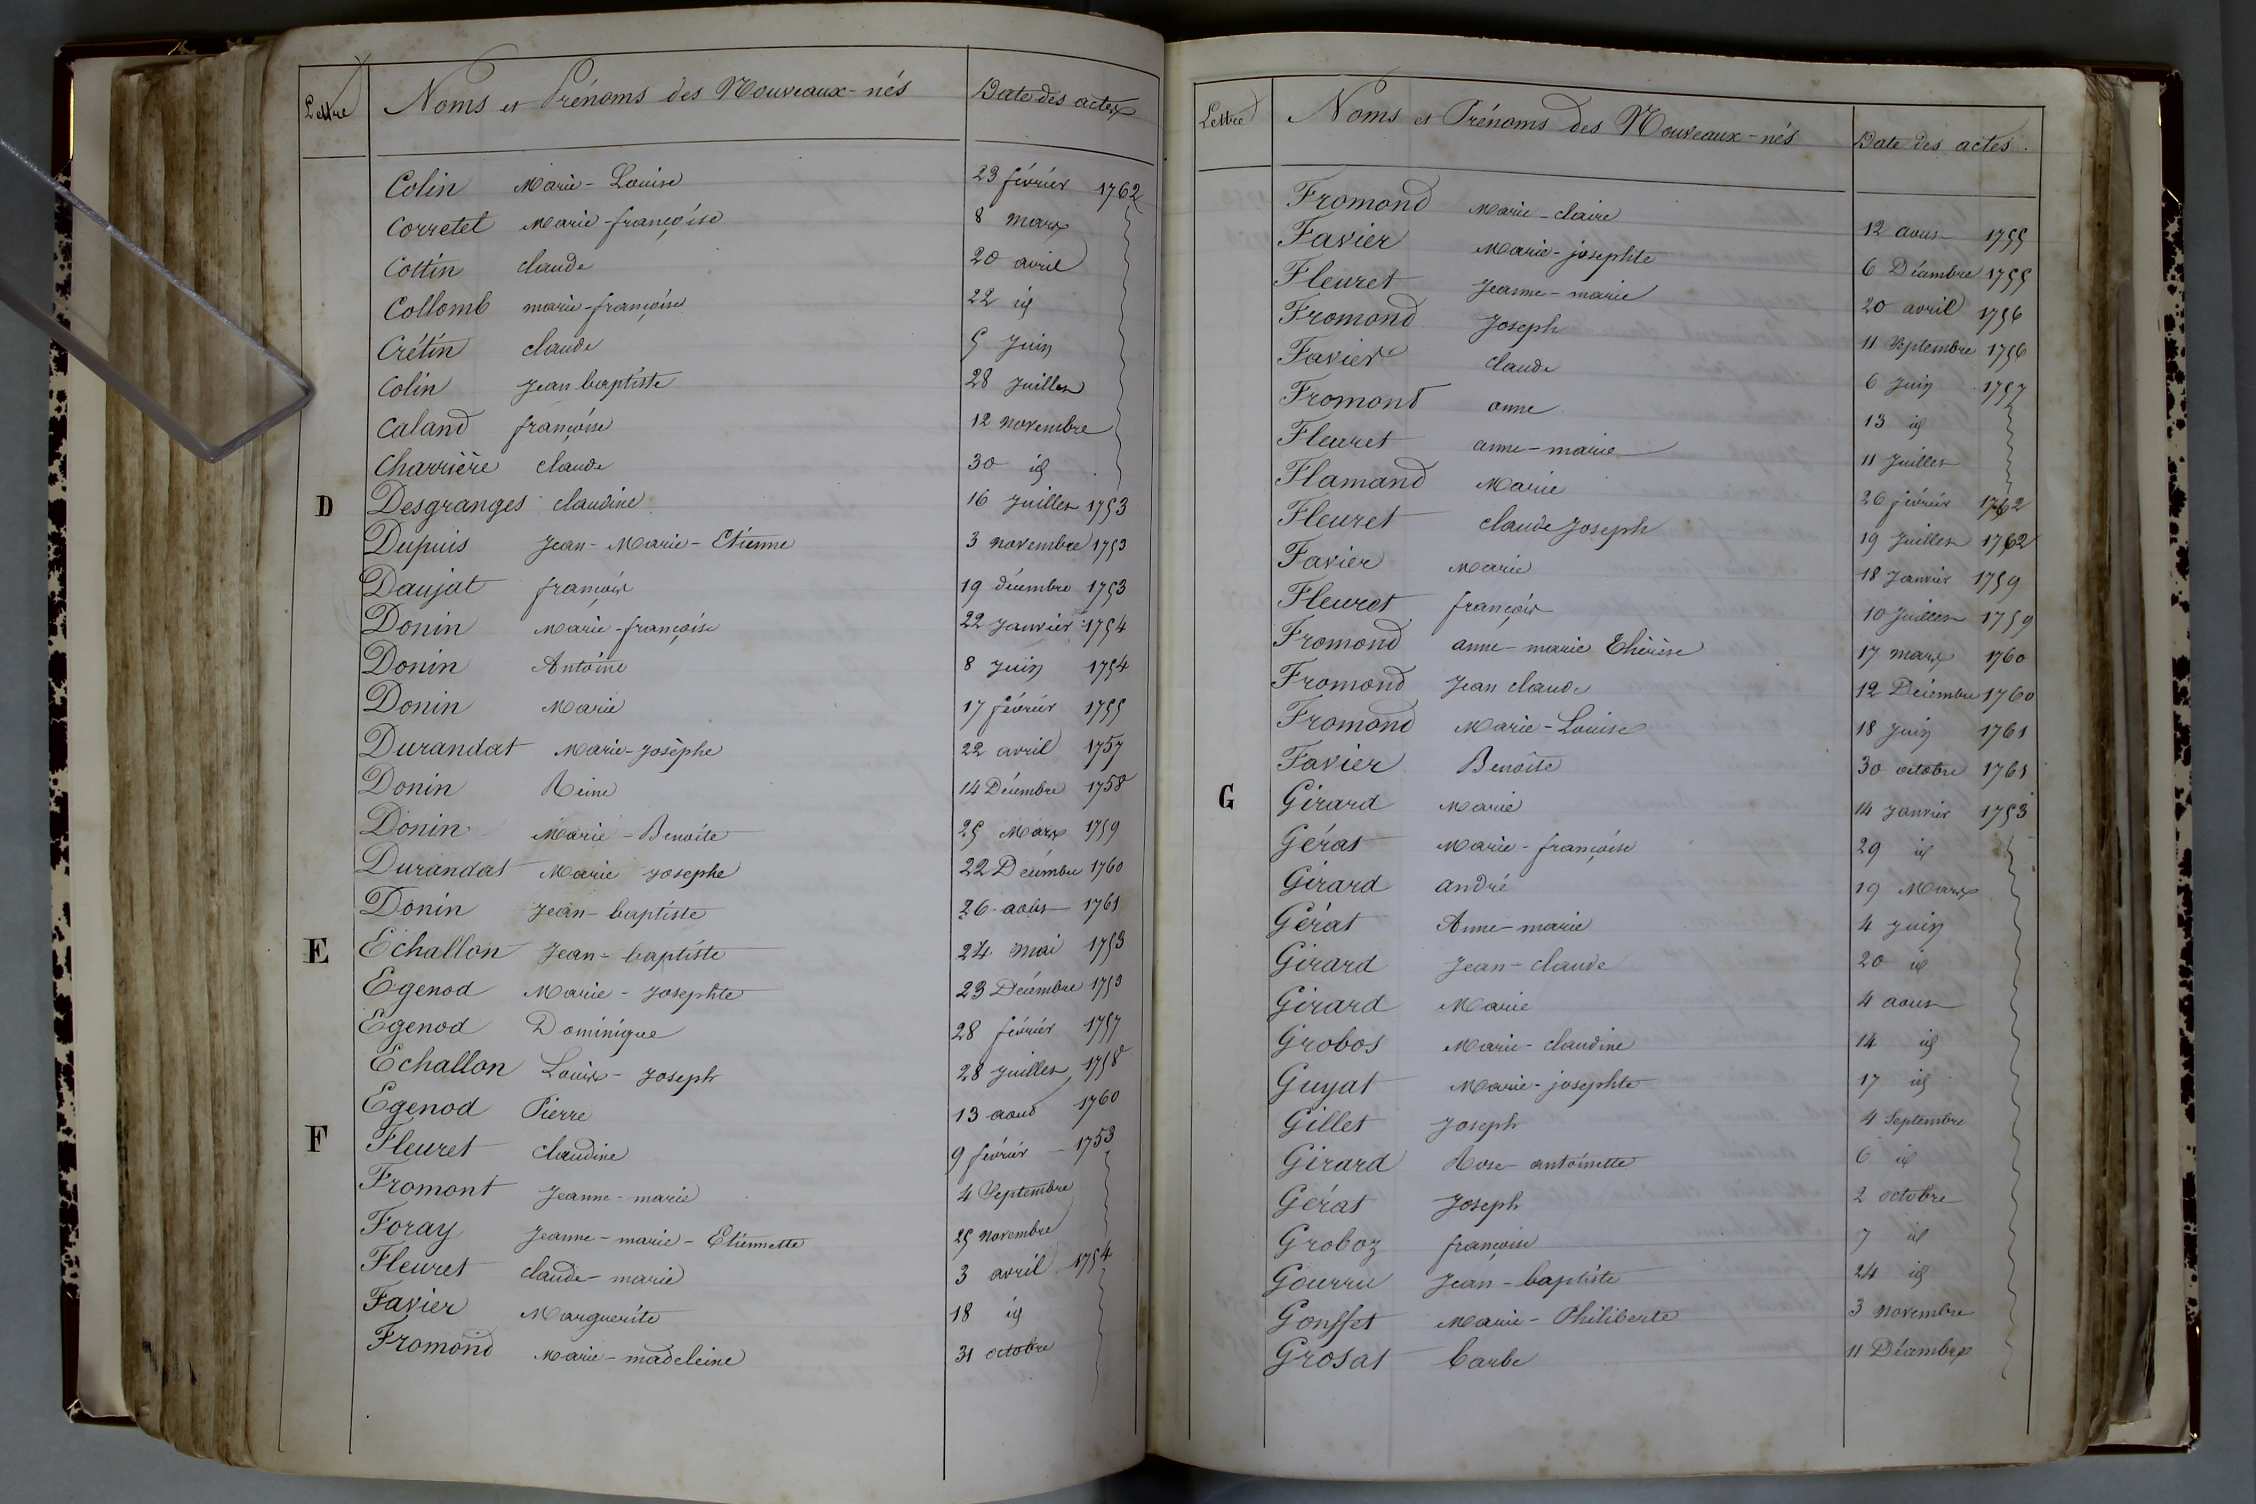 Lettre Noms et Prénoms des Nouveaux-nés Date des actes
Colin Marie-Louise 23 février 1762
Corretet Marie-françoise 8 mars
Cottin claude 20 avril
Collomb marie-françoise 22 id
Crétin claude 5 Juin
Colin Jean baptiste 28 Juillet
Caland françoise 12 novembre
Charrière claude 30 id
D Desgranges claudine 16 Juillet 1753
Dupuis Jean-Marie-Etienne 3 novembre 1753
Daujat françois 19 décembre 1753
Donin Marie-françoise 22 Janvier 1754
Donin Antoine 8 Juin 1754
Donin Marie 17 février 1755
Durandat Marie-Josèphe 22 avril 1757
Donin Reine 14 Décembre 1758
Donin Marie-Benoite 25 Mars 1759
Durandat Marie Josephe 22 Décembre 1760
Donin Jean-baptiste 26 août 1761
E Echallon Jean-baptiste 24 mai 1753
Egenod Marie-Josephte 23 Décembre 1753
Egenod Dominique 28 février 1757
Echallon Louis-Joseph 28 Juillet 1758
Egenod Pierre 13 aout 1760
F Fleuret claudine 9 février 1753
Fromont Jeanne-marie 4 Septembre
Foray Jeanne-marie-Etiennette 25 novembre
Fleuret claude-marie 3 avril 1754
Favier Marguerite 18 id
Fromond Marie-madeleine 31 octobre
Lettre Noms et Prénoms des Nouveaux-nés Date des actes.
Fromond Marie-claire 12 aout 1755
Favier Marie-josephte 6 Décembre 1755
Fleuret Jeanne-marie 20 avril 1756
Fromond Joseph 11 Septembre 1756
Favier claude 6 Juin 1757
Fromond anne 13 id
Fleuret anne-marie 11 Juillet
Flamand Marie 26 février 1762
Fleuret claude Joseph 19 Juillet 1762
Favier Marie 18 Janvier 1759
Fleuret françois 10 Juillet 1759
Fromond anne-marie Thérèse 17 mars 1760
Fromond Jean claude 12 Décembre 1760
Fromond Marie-Louise 18 Juin 1761
Favier Benoite 30 octobre 1761
G Girard Marie 14 Janvier 1753
Gérat Marie-françoise 29 id
Girard andré 19 Mars
Gérat Anne-marie 4 Juin
Girard Jean-claude 20 id
Girard Marie 4 aout
Grobos Marie-claudine 14 id
Guyat Marie-josephte 17 id
Gillet Joseph 4 Septembre
Girard Rose-antoinette 6 id
Gérat Joseph 2 octobre
Groboz françoise 7 id
Gourru Jean-baptiste 24 id
Gonsset Marie-Philiberte 3 novembre
Grosat barbe 11 Décembre